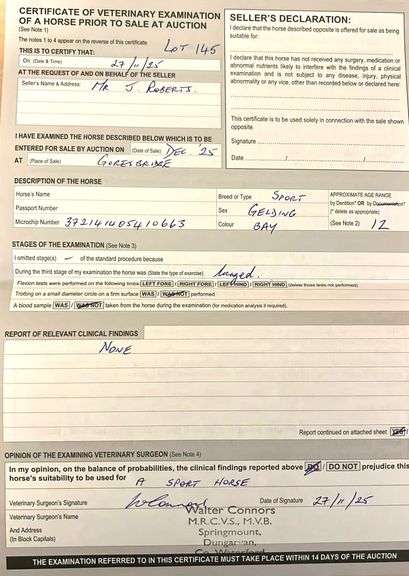 CERTIFICATE OF VETERINARY EXAMINATION
OF A HORSE PRIOR TO SALE AT AUCTION
(See Note 1)
The notes 1 to 4 appear on the reverse of this certificate
LOT 145
THIS IS TO CERTIFY THAT:
On (Date & Time) 27/11/25
AT THE REQUEST OF AND ON BEHALF OF THE SELLER
Seller's Name & Address: MR J ROBERTS.
I HAVE EXAMINED THE HORSE DESCRIBED BELOW WHICH IS TO BE
ENTERED FOR SALE BY AUCTION ON (Date of Sale) DEC '25
AT (Place of Sale) GORESBRIDGE
SELLER'S DECLARATION:
I declare that the horse described opposite is offered for sale as being
suitable for:
I declare that this horse has not received any surgery, medication or
abnormal nutrients likely to interfere with the findings of a clinical
examination and is not subject to any disease, injury, physical
abnormality or any vice, other than recorded below or declared here:
This certificate is to be used solely in connection with the sale shown
opposite.
Signature
Date / /
DESCRIPTION OF THE HORSE
Horse's Name
Passport Number
Microchip Number 372141405410663
Breed or Type SPORT
Sex GELDING
Colour BAY
APPROXIMATE AGE RANGE
by Dentition* OR by Documentation*
(* delete as appropriate)
(See Note 2) 12
STAGES OF THE EXAMINATION (See Note 3)
I omitted stage(s) — of the standard procedure because
During the third stage of my examination the horse was (State the type of exercise) lunged.
Flexion tests were performed on the following limbs LEFT FORE / RIGHT FORE / LEFT HIND / RIGHT HIND (delete those limbs not performed)
Trotting on a small diameter circle on a firm surface WAS / WAS NOT performed
A blood sample WAS / WAS NOT taken from the horse during the examination (for medication analysis if required).
REPORT OF RELEVANT CLINICAL FINDINGS
NONE
Report continued on attached sheet YES/
OPINION OF THE EXAMINING VETERINARY SURGEON (See Note 4)
In my opinion, on the balance of probabilities, the clinical findings reported above DO / DO NOT prejudice this
horse's suitability to be used for A SPORT HORSE
Veterinary Surgeon's Signature
Date of Signature 27/11/25
Veterinary Surgeon's Name
And Address
(In Block Capitals)
Walter Connors
M.R.C.V.S., M.V.B.
Springmount,
Dungarvan,
Co. Waterford
THE EXAMINATION REFERRED TO IN THIS CERTIFICATE MUST TAKE PLACE WITHIN 14 DAYS OF THE AUCTION